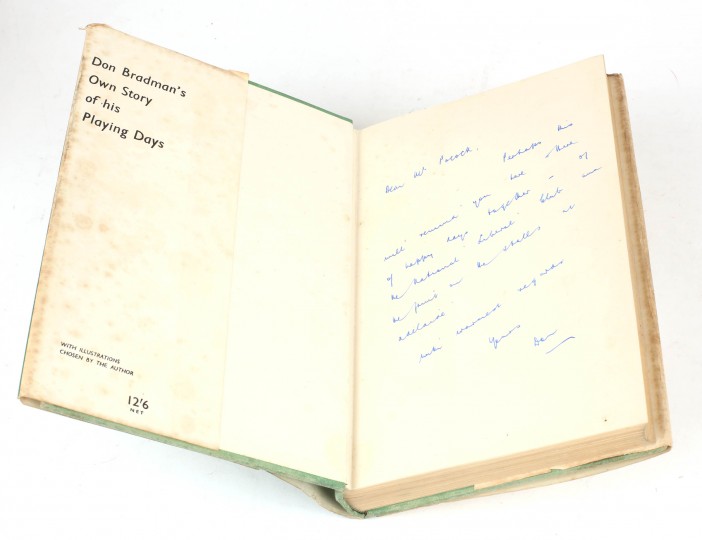 Don Bradman's
Own Story
of his
Playing Days
WITH ILLUSTRATIONS
CHOSEN BY THE AUTHOR
12'6
NET
Dear Mr. Pocock.
Perhaps this
will remind you
of happy days together - of
the National Liberal Club and
the
Adelaide
with warmest regards
Yours
Don